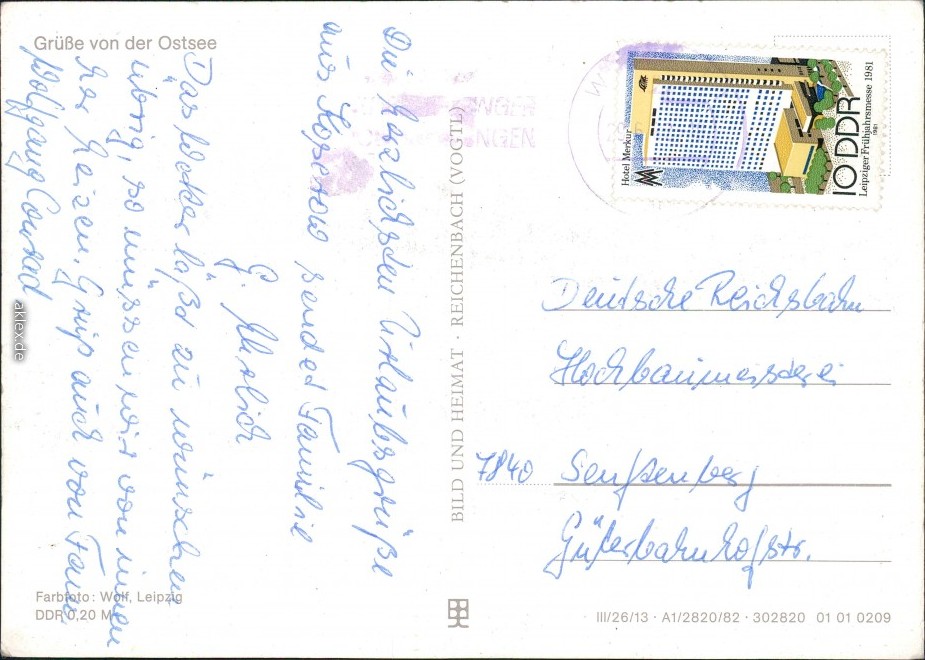 Grüße von der Ostsee
Die herzlichsten Urlaubsgrüße
aus Koserow sendet Familie
G. Mirlich
Das Wetter läßt zu wünschen
übrig, so müssen wir von innen
her heizen. Gruß auch von Fam.
Wolfgang Conrad
BILD UND HEIMAT · REICHENBACH (VOGTL)
Hotel Merkur
10 DDR
Leipziger Frühjahrsmesse 1981
1981
Deutsche Reichsbahn
Hochbaumeisterei
7840 Senftenberg
Güterbahnhofstr.
Farbfoto: Wolf, Leipzig
DDR 0,20 M
III/26/13 · A1/2820/82 · 302820 01 01 0209
aklex.de